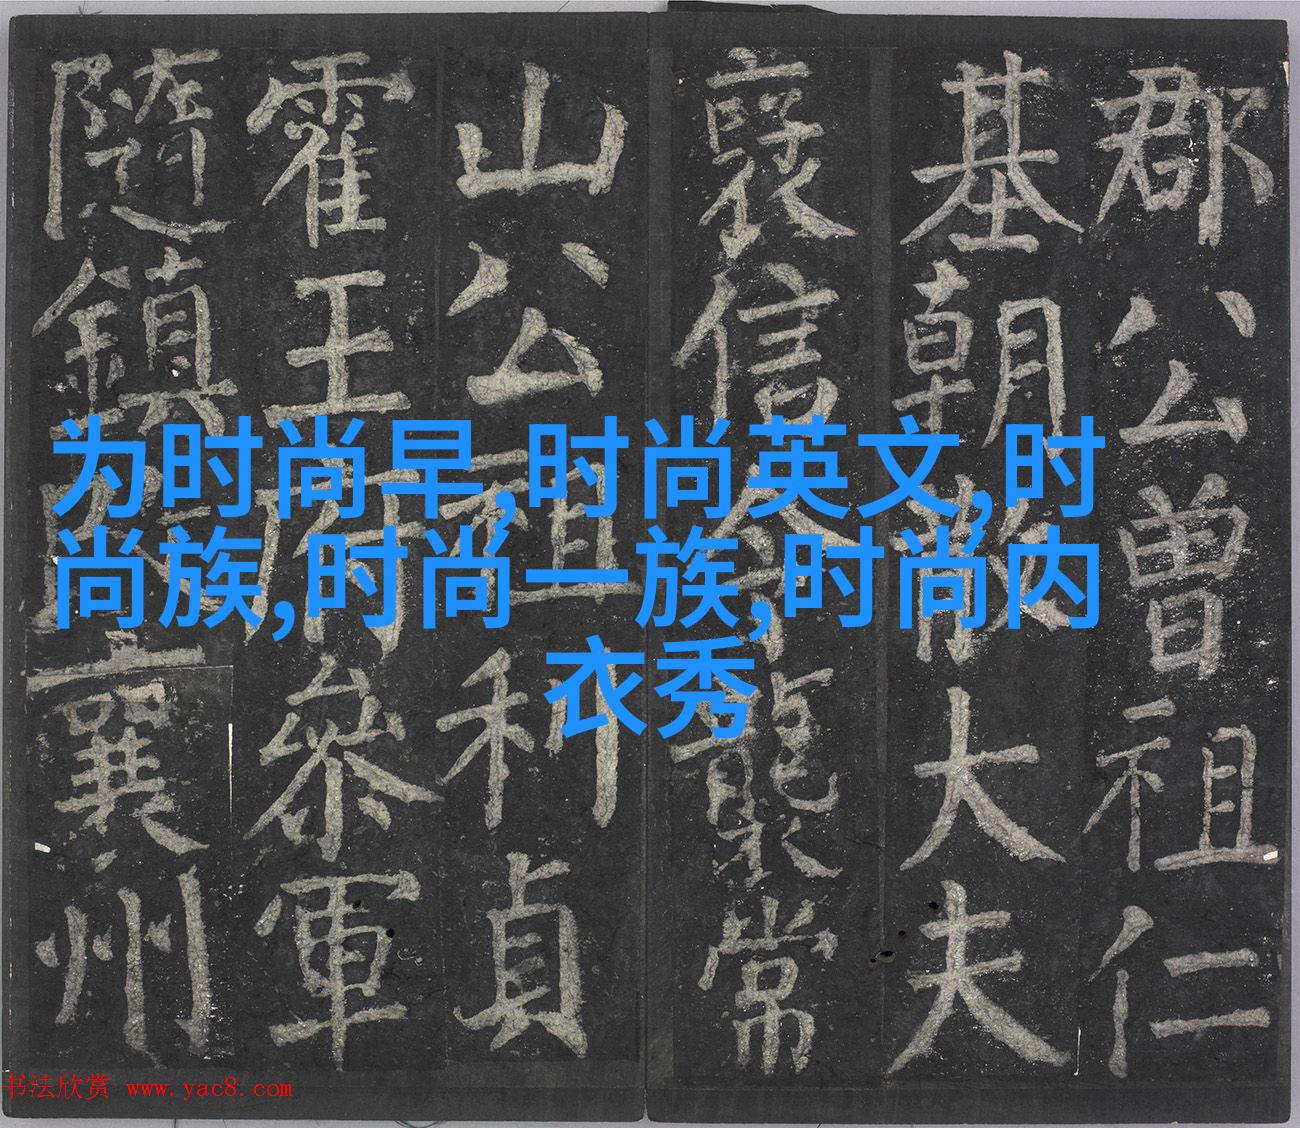 郡公曾祖仁
基朝散大夫
襃信令襲常
山公祖利貞
霍王府參軍
隨鎮襄州
为时尚早,时尚英文,时
尚族,时尚一族,时尚内
衣秀
书法欣赏 www.yac8.com